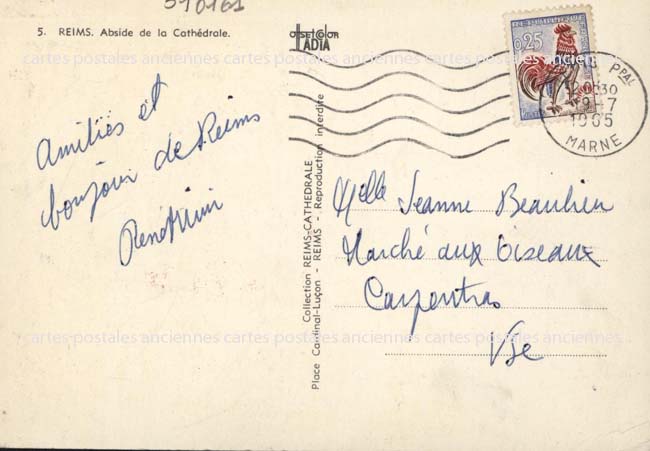 590161
5. REIMS. Abside de la Cathédrale.
OFFSETCOLOR
IADIA
0,25
Ppal
12 30
9-7
1965
MARNE
cartes postales anciennes cartes postales anciennes cartes postales anciennes
Amitiés et
bonjour de Reims
Collection REIMS-CATHEDRALE
Place Cardinal-Luçon - REIMS - Reproduction interdite
Mlle Jeanne Beaulieu
Marché aux Oiseaux
Carpentras
Vse
cartes postales anciennes cartes postales anciennes cartes postales anciennes